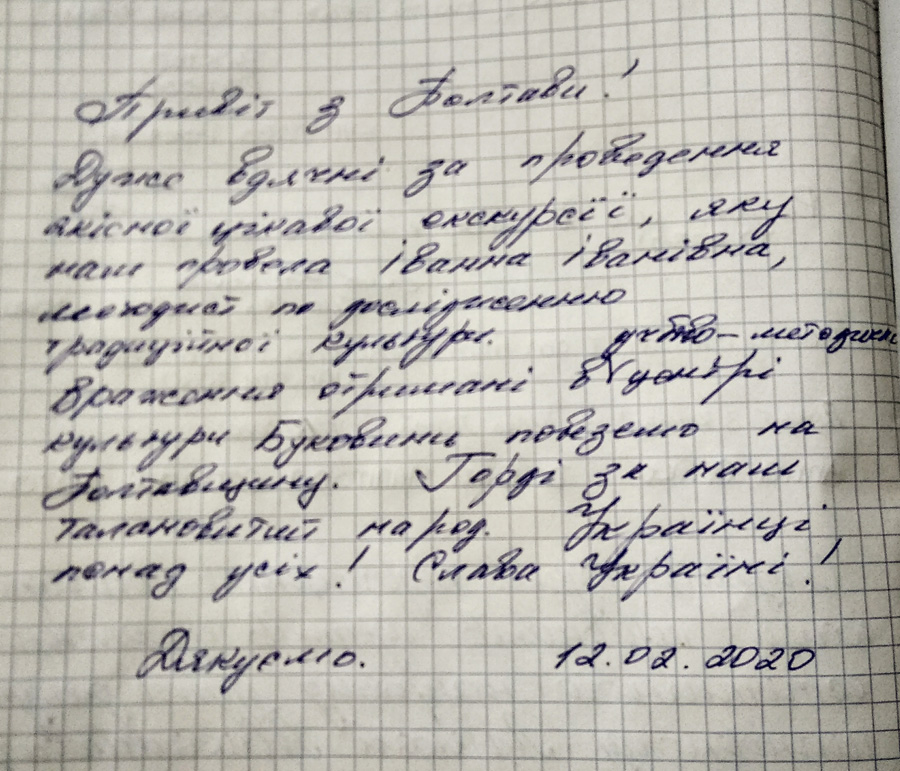 Привіт з Полтави!
Дуже вдячні за проведення
якісної цікавої екскурсії, яку
нам провела Іванна Іванівна,
методист по дослідженню
традиційної культури. учбово-методичн
Враження отримані в центрі
культури Буковини повеземо на
Полтавщину. Горді за наш
талановитий народ. Українці
понад усіх! Слава Україні!
Дякуємо. 12.02.2020